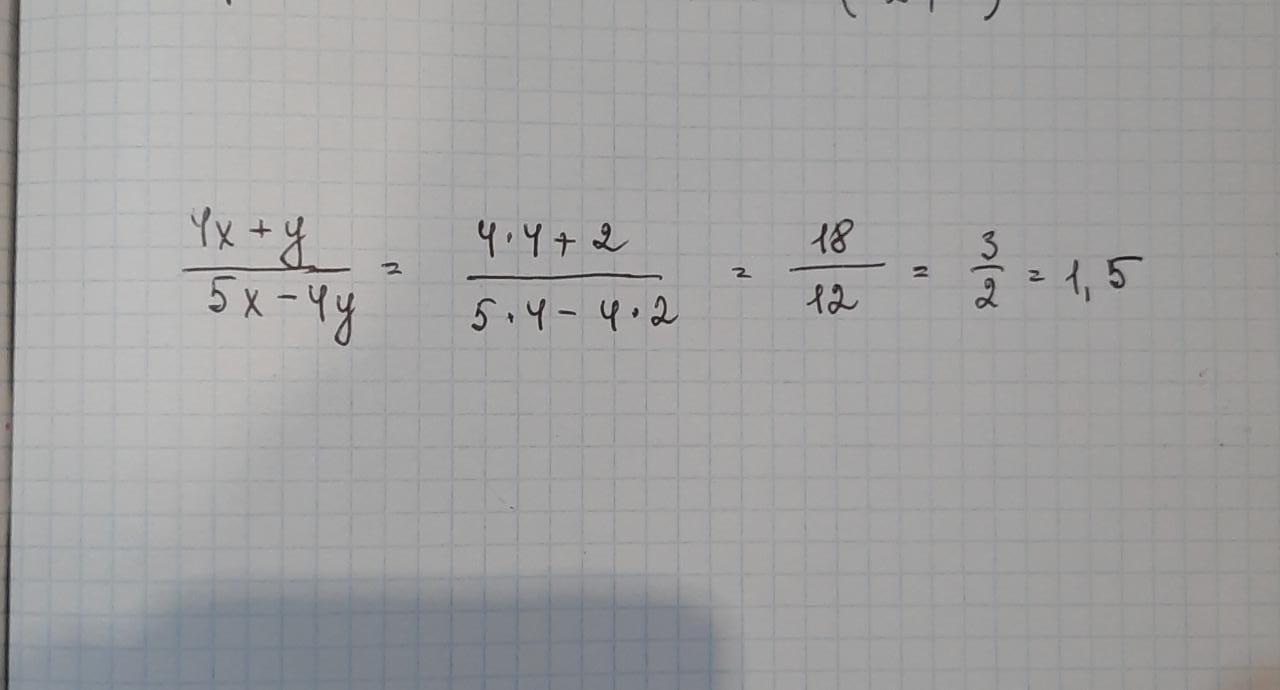 (4x + y)/(5x - 4y) = (4·4 + 2)/(5·4 - 4·2) = 18/12 = 3/2 = 1,5